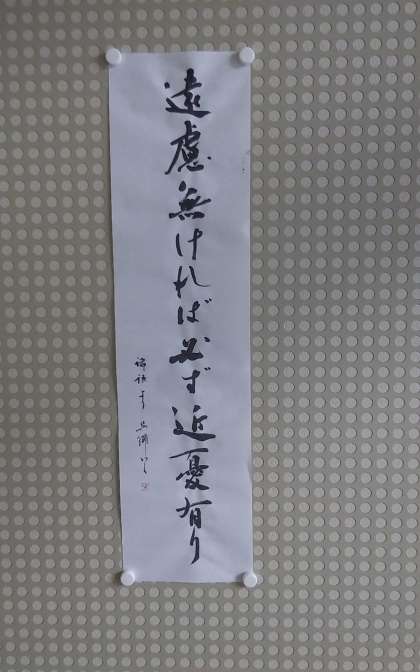 遠慮無ければ必ず近憂有り